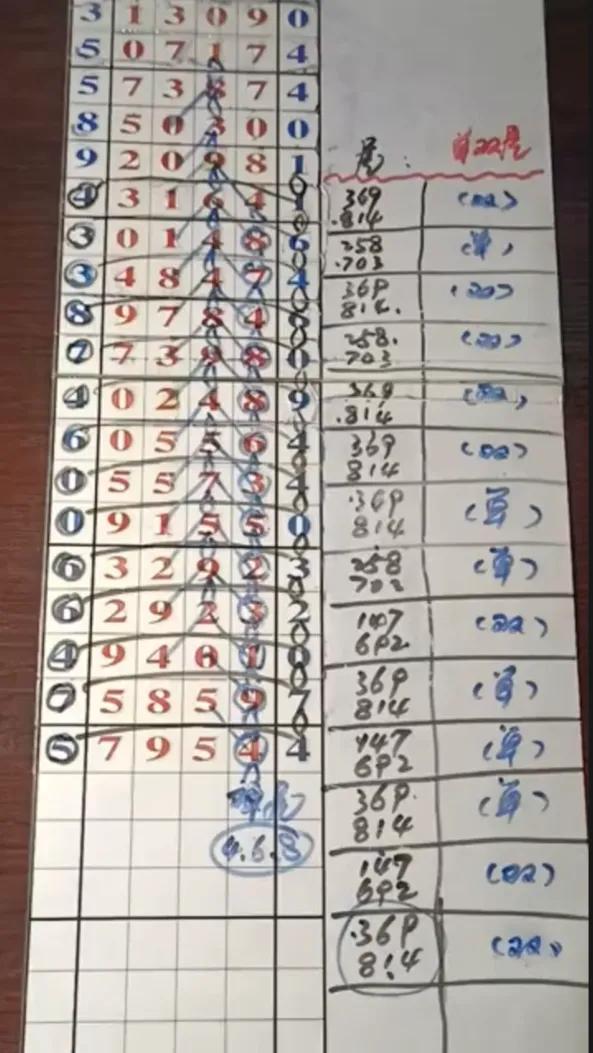 3 1 3 0 9 0
5 0 7 1 7 4
5 7 3 8 7 4
8 5 0 3 0 0
9 2 0 9 8 1
尾: 单双尾
4 3 1 6 4 1
369
814
(双)
3 0 1 4 8 6
258
703
(单)
3 4 8 4 7 4
369
814
(双)
8 9 7 8 4 8
258
703
(双)
7 7 3 9 8 0
369
814
(双)
4 0 2 4 8 9
369
814
(双)
6 0 5 5 6 4
369
814
(单)
0 5 5 7 3 4
258
702
(单)
0 9 1 5 5 0
147
692
(双)
6 3 2 9 2 3
369
814
(单)
6 2 9 2 3 2
147
692
(单)
4 9 4 0 1 0
369
814
(单)
7 5 8 5 9 7
147
692
(双)
5 7 9 5 4 4
369
814
(双)
4.6.8